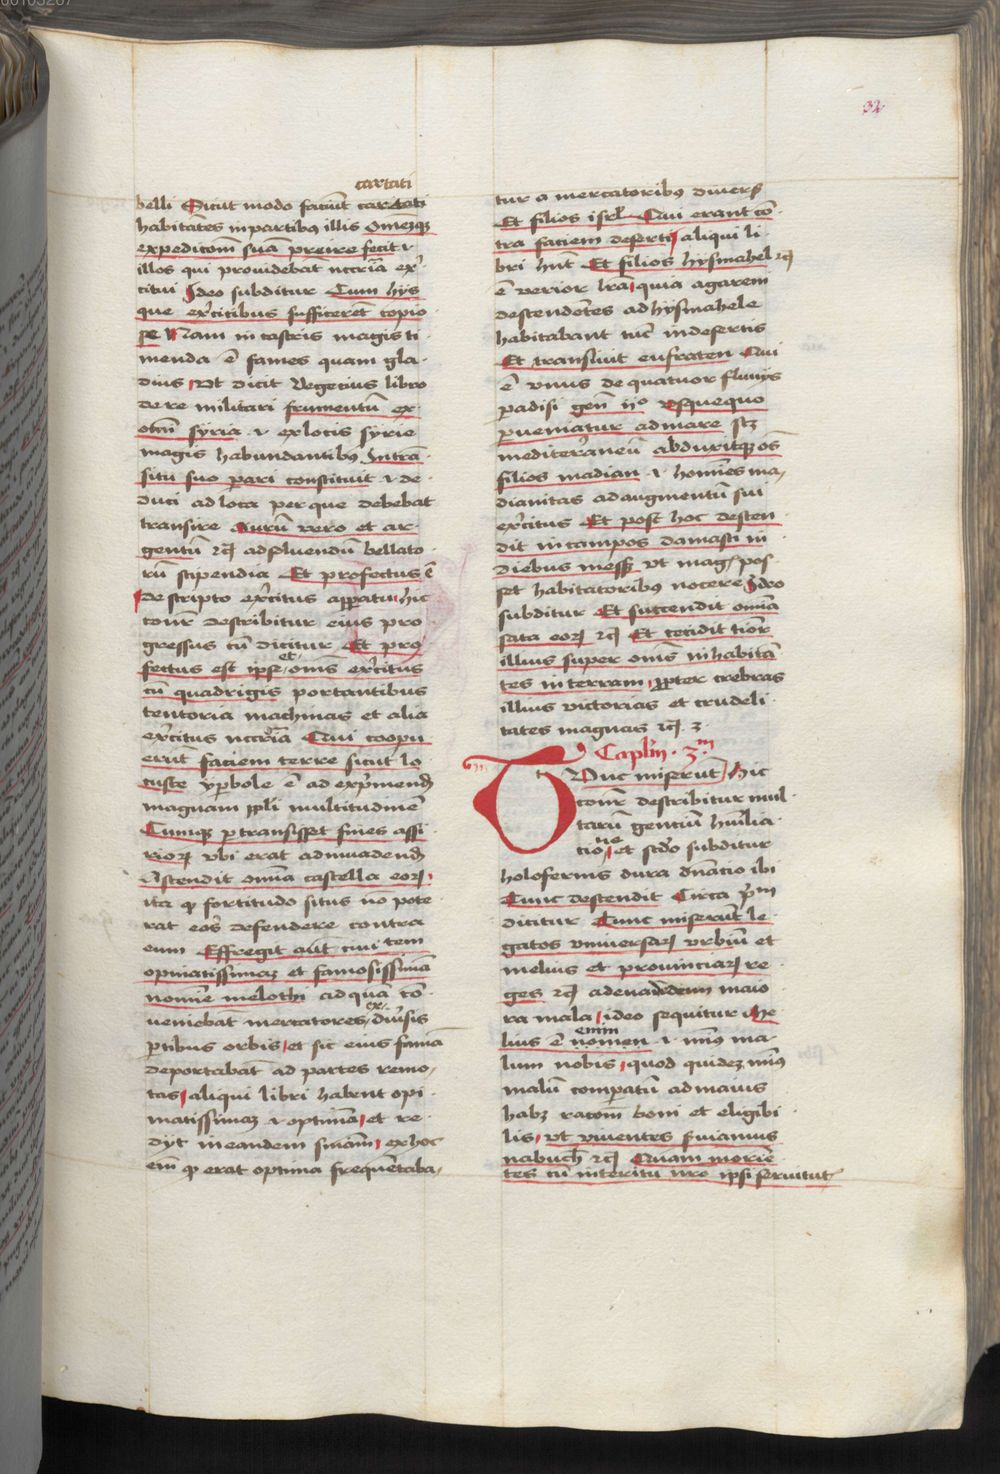 32
cartati
belli Sicut modo faciūt cartati
habitātes in partibꝰ illis Omēꝫqꝫ
expedicōm suā preire fecit ⁊
illos qui prouidebat nccriā ex̄
citui Ideo subditur Cum hys
que ex̄citibus sufficerēt copio
se Nam in castris magis ti
menda ē fames quam gla
dius, vt dicit Vegecius libro
de re militari frumentū ex
om̄ syria ⁊ ex locis syrie
magis habundantibꝰ In trā
situ suo pari constituit ⁊ de
duci ad loca per que debebat
transire Aurū vero et ar
gentū ⁊cꝭ ad soluendū bellato
rū stipendia Et profectus ē
descripto ex̄citus appatu, hic
conr̄ describitur eius pro
gressus cū dicitur Et pro
fectus est ipse et om̄is ex̄citus
cū quadrigis portantibus
tentoria machinas et alia
ex̄citus nccr̄ia Qui coopu
erūt faciem terre sicut lo
custe yp̄bole ē ad exp̄mend̄
magnam ppli multitudinē
Cumqꝫ ptransisset fines assi
rioꝝ vbi erat ad inuadend̄
Ascendit om̄ia castella eoꝝ,
ita ꝙ fortitudo situs nō pote
rat eos defendere contra
eum Effregit aūt ciui tem
opinatissimaꝫ et famosissimā
nomīe melothi ad quā cō
ueniebat mercatores ex diūsis
ꝑtibus orbis, et sic eius famā
deportabāt ad partes remo,
tas, aliqui libri habent opi
matissimaꝫ ⁊ optimā, et re
dyt in eandem sniam, ex hoc
em̄ ꝙ erat optima frequētaba,
tur a mercatoribꝰ diuers̄
Et filios isrl̄ Qui erant cō
tra faciem deserti, aliqui li
bri hn̄t Et filios hysmahel ⁊cꝭ
ē verior lr̄a, quia agareni
descendētes ad hysmahele
habitabant tūc in desertis
Et transiuit eufraten Qui
ē vnus de quatuor fluuijs
padisi gen̄ ijº vsquequo
pueniatur ad mare scꝫ
mediterraneū abduxitqꝫ oēs
filios madian ⁊ homīes ma,
dianitas ad augmentū sui
ex̄citus Et post hoc descen
dit in campos damasci in
diebus mess̄ vt maḡ pos
set habitatoribꝰ nocere Ideo
subditur Et succendit om̄ia
sata eoꝝ ⁊cꝭ Et cecidit timor
illius super om̄is inhabitā
tes in terram, ppter crebras
illius victorias et crudeli
tates magnas ⁊cꝭ 3
Caplm̄ · 3m
Tunc miserūt, Hic
conr̄ describitur mul
tarū gentiū humilia
tione, et scd̄o subditur
holofernis dura dn̄acio ibi
Tunc descendit Circa pm̄
dicitur Tunc miserūt le
gatos vniuersaꝝ vrbiū et
melius et prouinciaꝝ re
ges ⁊cꝭ ad euadendum maio
ra mala, ideo sequitur Me
lius ē enim nomen ⁊ minꝰ ma
lum nobis, quod quideꝫ minꝰ
malū compatū ad maius
habꝫ racōm boni et eligibi
lis, vt viuentes seruiamus
nabuch ⁊cꝭ Quam moriē
tes cū interitu nr̄o ipsi seruitut